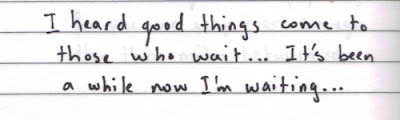 I heard good things come to
those who wait... It's been
a while now I'm waiting...